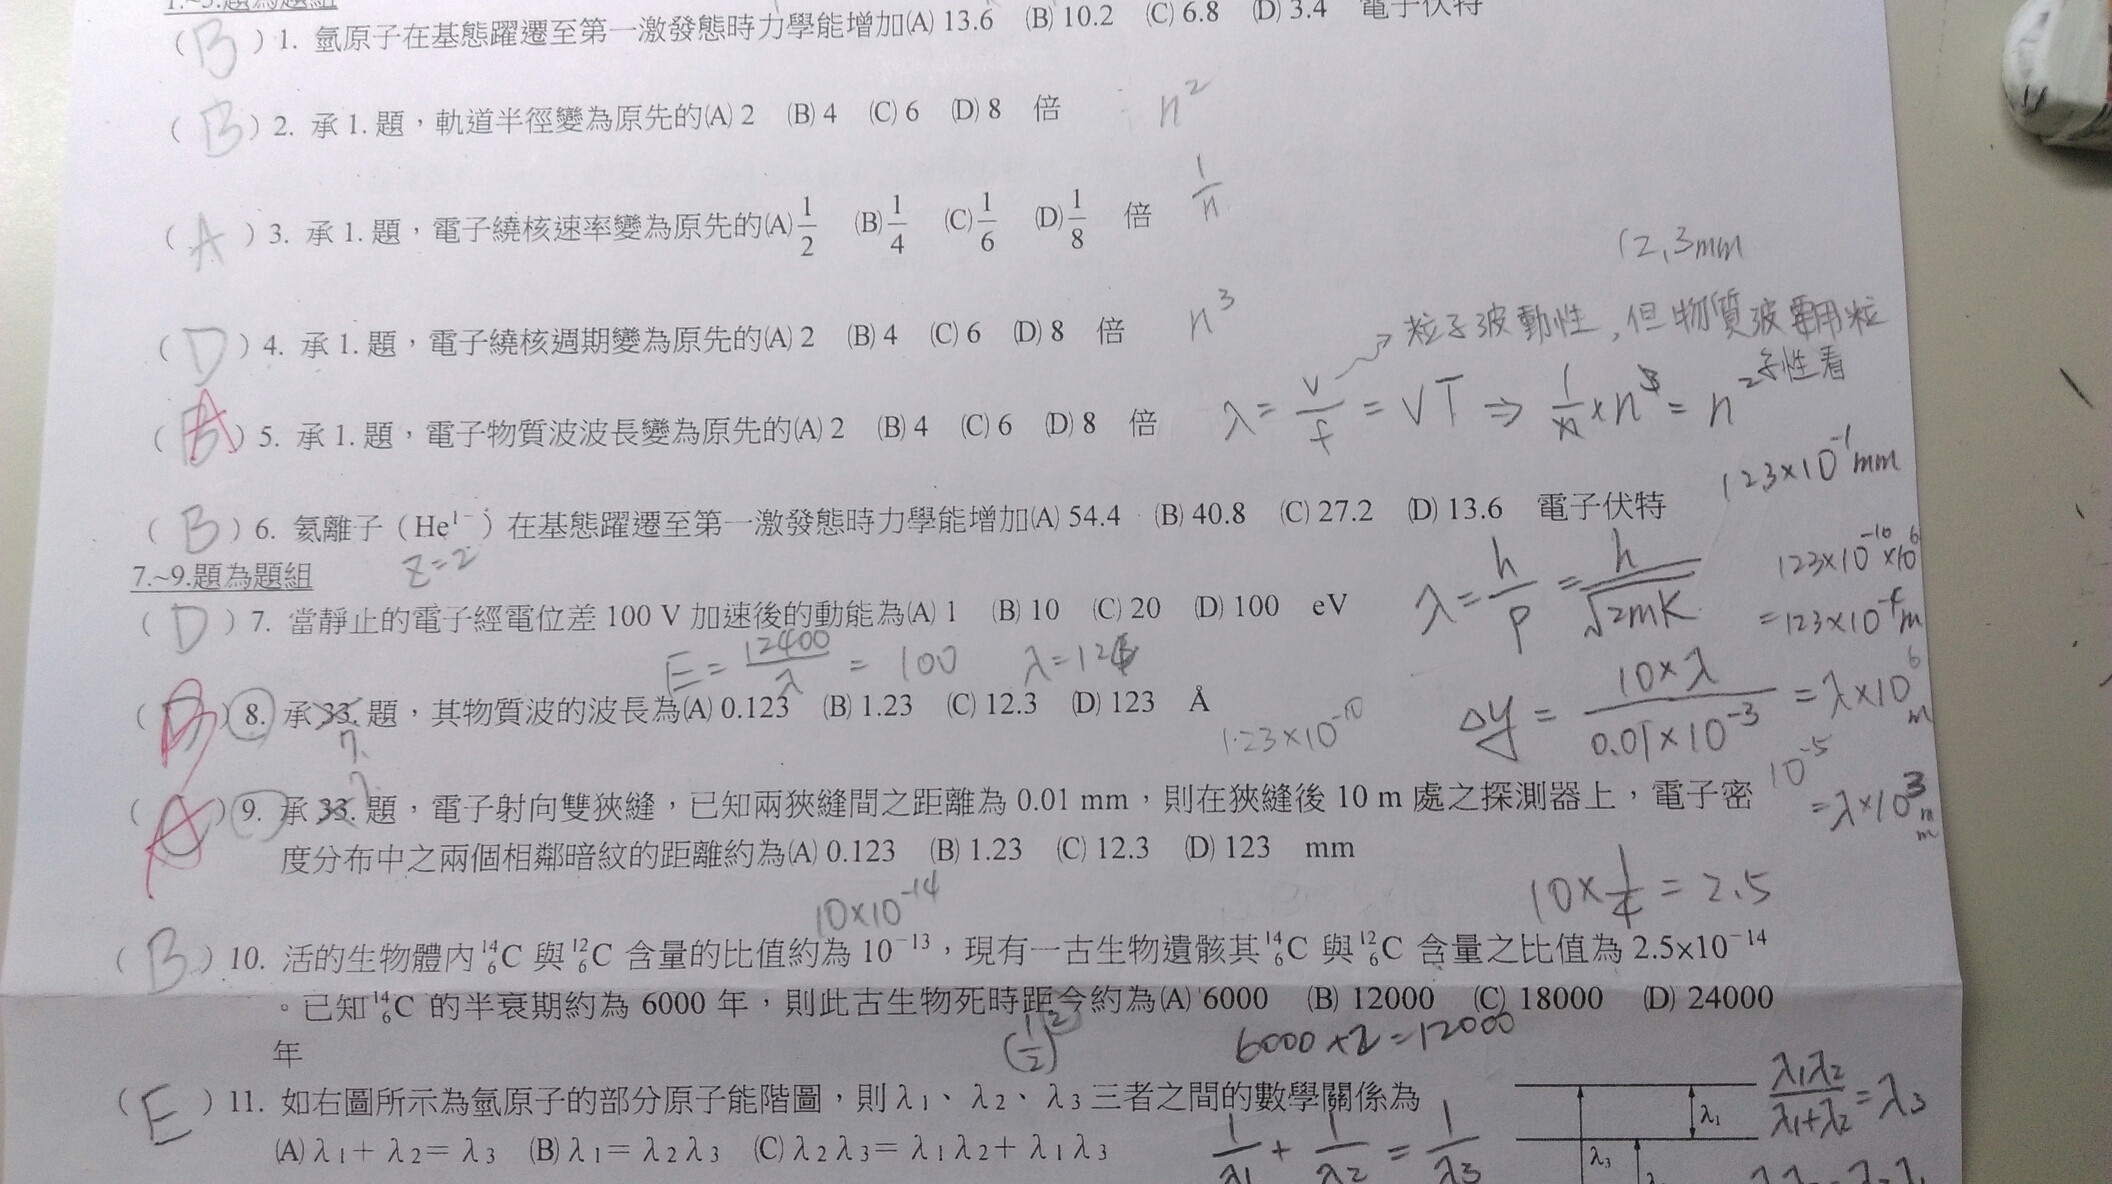 1.~5.題為題組
(B) 1. 氫原子在基態躍遷至第一激發態時力學能增加(A) 13.6 (B) 10.2 (C) 6.8 (D) 3.4 電子伏特
(B) 2. 承 1. 題，軌道半徑變為原先的(A) 2 (B) 4 (C) 6 (D) 8 倍 n²
(A) 3. 承 1. 題，電子繞核速率變為原先的(A) 1/2 (B) 1/4 (C) 1/6 (D) 1/8 倍 1/n
12.3mm
(D) 4. 承 1. 題，電子繞核週期變為原先的(A) 2 (B) 4 (C) 6 (D) 8 倍 n³
→粒子波動性，但物質波要用粒
子性看
(A) 5. 承 1. 題，電子物質波波長變為原先的(A) 2 (B) 4 (C) 6 (D) 8 倍 λ = v/f = VT ⇒ 1/n × n³ = n²
123×10⁻¹mm
(B) 6. 氦離子（He¹⁻）在基態躍遷至第一激發態時力學能增加(A) 54.4 (B) 40.8 (C) 27.2 (D) 13.6 電子伏特
Z=2
7.~9.題為題組
λ = h/p = h/√2mK
123×10⁻¹⁰×10⁶
(D) 7. 當靜止的電子經電位差 100 V 加速後的動能為(A) 1 (B) 10 (C) 20 (D) 100 eV
E = 12400/λ = 100
(B) 8. 承 33. 題，其物質波的波長為(A) 0.123 (B) 1.23 (C) 12.3 (D) 123 Å
7.
1.23×10⁻¹⁰
Δy = 10×λ/0.01×10⁻³ = λ×10⁶ m
10⁻⁵
= λ×10³ mm
(A) 9. 承 33. 題，電子射向雙狹縫，已知兩狹縫間之距離為 0.01 mm，則在狹縫後 10 m 處之探測器上，電子密
度分布中之兩個相鄰暗紋的距離約為(A) 0.123 (B) 1.23 (C) 12.3 (D) 123 mm
10×10⁻¹⁴
10×1/4 = 2.5
(B) 10. 活的生物體內 ¹⁴₆C 與 ¹²₆C 含量的比值約為 10⁻¹³，現有一古生物遺骸其 ¹⁴₆C 與 ¹²₆C 含量之比值為 2.5×10⁻¹⁴
。已知 ¹⁴₆C 的半衰期約為 6000 年，則此古生物死時距今約為(A) 6000 (B) 12000 (C) 18000 (D) 24000
年
(1/2)²
6000×2=12000
(E) 11. 如右圖所示為氫原子的部分原子能階圖，則 λ1、λ2、λ3 三者之間的數學關係為
(A) λ1＋ λ2＝ λ3 (B) λ1＝ λ2 λ3 (C) λ2 λ3＝ λ1 λ2＋ λ1 λ3
1/λ1 + 1/λ2 = 1/λ3
λ1
λ3
λ1λ2/λ1+λ2 = λ3